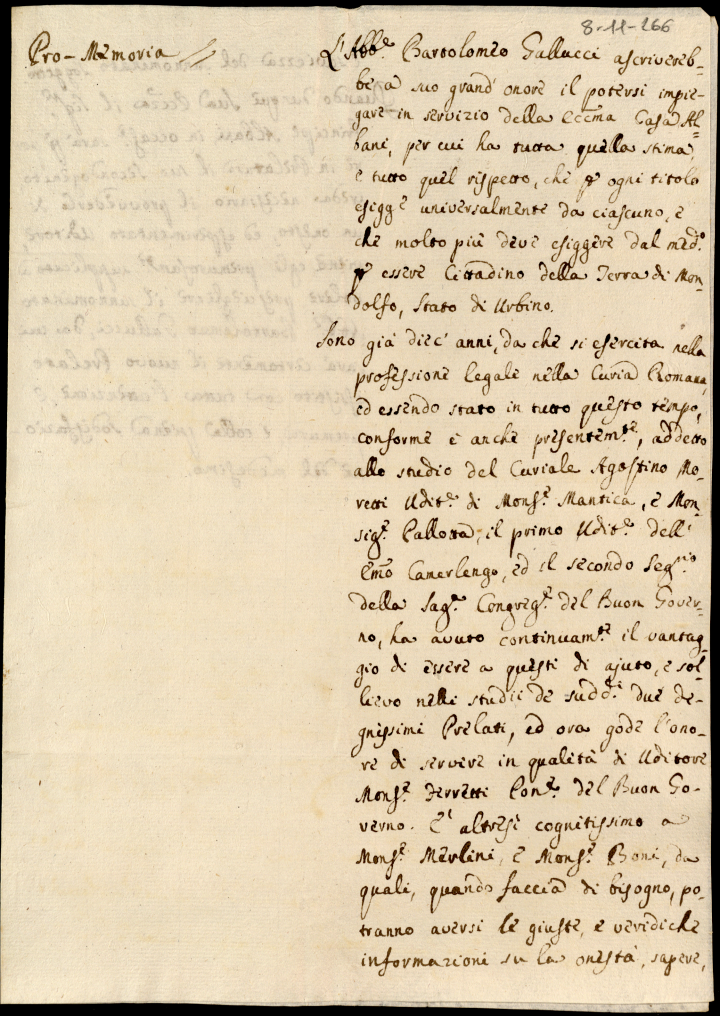 8-11-266
Pro-Memoria
L'Abb.e Bartolomeo Gallucci ascrivereb-
be a suo grand' onore il potersi impie-
gare in servizio della Eccma Casa Al-
bani, per cui ha tutta quella stima,
e tutto quel rispetto, che p ogni titolo
esigge universalmente da ciascuno, e
che molto più deve esiggere dal med.o
p essere Cittadino della Terra di Mon-
dolfo, Stato di Urbino.
Sono già diec' anni, da che si esercita nella
professione legale nella Curia Romana,
ed essendo stato in tutto questo tempo,
conforme è anche presentem.te, addetto
allo studio del Curiale Agostino Mo-
retti Udit.e di Mons.r Mantica, e Mon-
sig.r Pallotta, il primo Udit.e dell'
Emo Camerlengo, ed il secondo Seg.rio
della Sag.a Congreg.e del Buon Gover-
no, ha avuto continuam.te il vantag-
gio di essere a questi di ajuto, e sol-
lievo nelli studii de sudd.i due de-
gnissimi Prelati, ed ora gode l'ono-
re di servire in qualità di Uditore
Mons.r Ferretti Pon.e del Buon Go-
verno. E' altresì cognitissimo a
Mons.r Merlini, e Mons.r Boni, da
quali, quando faccia di bisogno, po-
tranno aversi le giuste, e veridiche
informazioni su la onestà, sapere,